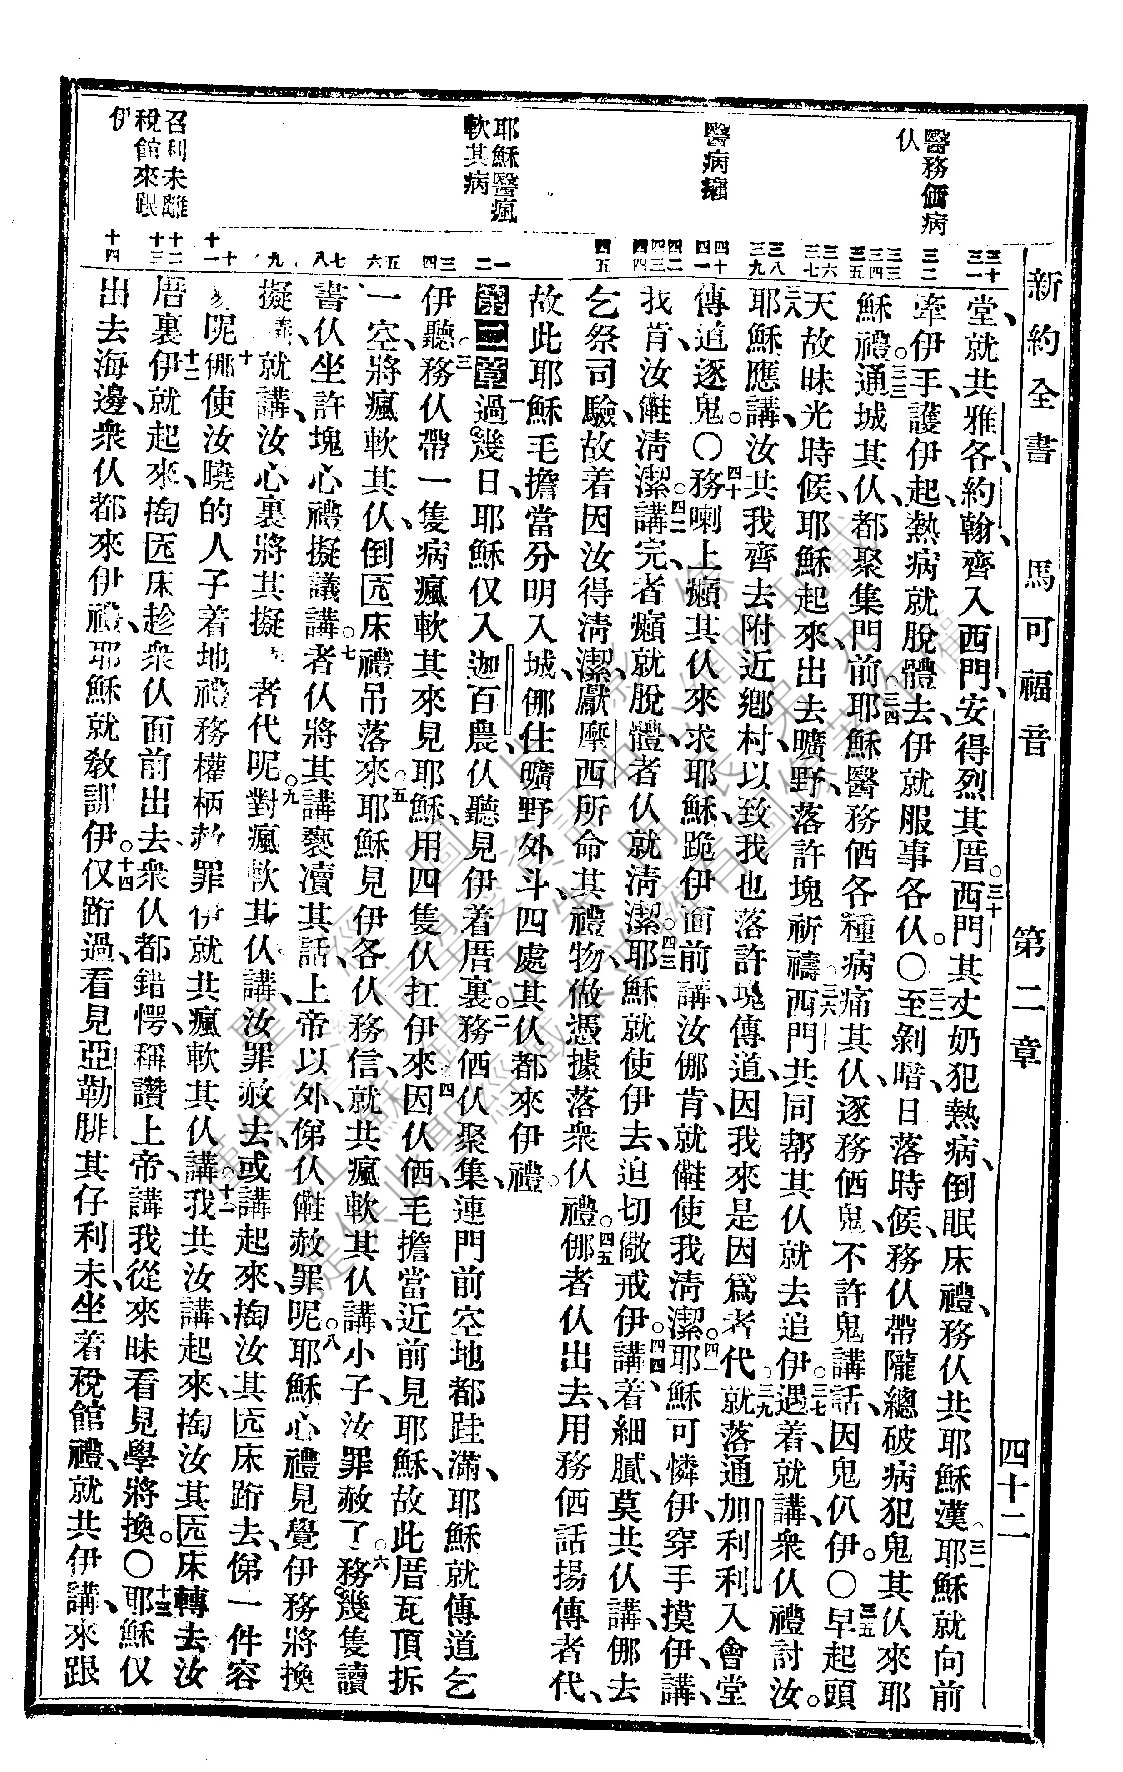 新約全書 馬可福音 第二章 四十二
醫務價病仈
醫病癩
耶穌醫瘋軟其病
召利未離稅館來跟伊
堂、就共雅各、約翰、齊入西門、安得烈其厝。三十西門其丈奶犯熱病、倒眠床禮、務仈共耶穌漢。三一耶穌就向前
牽伊手、護伊起、熱病就脫體去、伊就服事各仈。〇三二至剝暗日落時候、務仈帶隴總破病犯鬼其仈、來耶
穌禮。三三通城其仈、都聚集門前。三四耶穌醫務価各種病痛其仈、逐務価鬼、不許鬼講話、因鬼仈伊。〇三五早起頭
天故昧光時候、耶穌起來出去曠野、落許塊祈禱。三六西門共同幇其仈、就去追伊。三七遇着就講、衆仈禮討汝。
三八耶穌應講、汝共我齊去附近鄉村、以致我也落許塊傳道、因我來是因爲者代。三九就落通加利利入會堂
傳道逐鬼。〇四十務喇上癩其仈來求耶穌、跪伊面前講、汝㑚肯、就儺使我淸潔。四一耶穌可憐伊、穿手摸伊講、
我肯、汝儺淸潔。四二講完、者癩就脫體、者仈就淸潔。四三耶穌就使伊去、迫切儆戒伊講。四四着細膩、莫共仈講、㑚去
乞祭司驗、故着因汝得淸潔、獻摩西所命其禮物、做憑據落衆仈禮。四五㑚者仈出去、用務価話揚傳者代、
故此耶穌毛擔當分明入城、㑚住曠野外斗、四處其仈都來伊禮。
第二章 一過幾日、耶穌仅入迦百農、仈聽見伊着厝裏。二務価仈聚集、連門前空地都跬滿、耶穌就傳道乞
伊聽。三務仈帶一隻病瘋軟其來見耶穌、用四隻仈扛伊來。四因仈価毛擔當近前見耶穌、故此厝瓦頂拆
一空、將瘋軟其仈倒匟床禮吊落來。五耶穌見伊各仈務信、就共瘋軟其仈講、小子、汝罪赦了。六務幾隻讀
書仈坐許塊、心禮擬議講。七者仈將其講褻瀆其話、上帝以外、俤仈儺赦罪呢。八耶穌心禮見覺伊務將換
擬議、就講、汝心裏將其擬者代呢。九對瘋軟其仈講、汝罪赦去、或講起來、掏汝其匟床跲去、俤一件容
易呢。十㑚使汝曉的人子着地禮務權柄赦罪、伊就共瘋軟其仈講。十一我共汝講、起來、掏汝其匟床轉去汝
厝裏。十二伊就起來、掏匟床趁衆仈面前出去、衆仈都錯愕、稱讚上帝、講、我從來昧看見學將換。〇十三耶穌仅
出去海邊、衆仈都來伊禮、耶穌就敎訓伊。十四伊仅跲過、看見亞勒腓其仔利未、坐着稅館禮、就共伊講、來跟